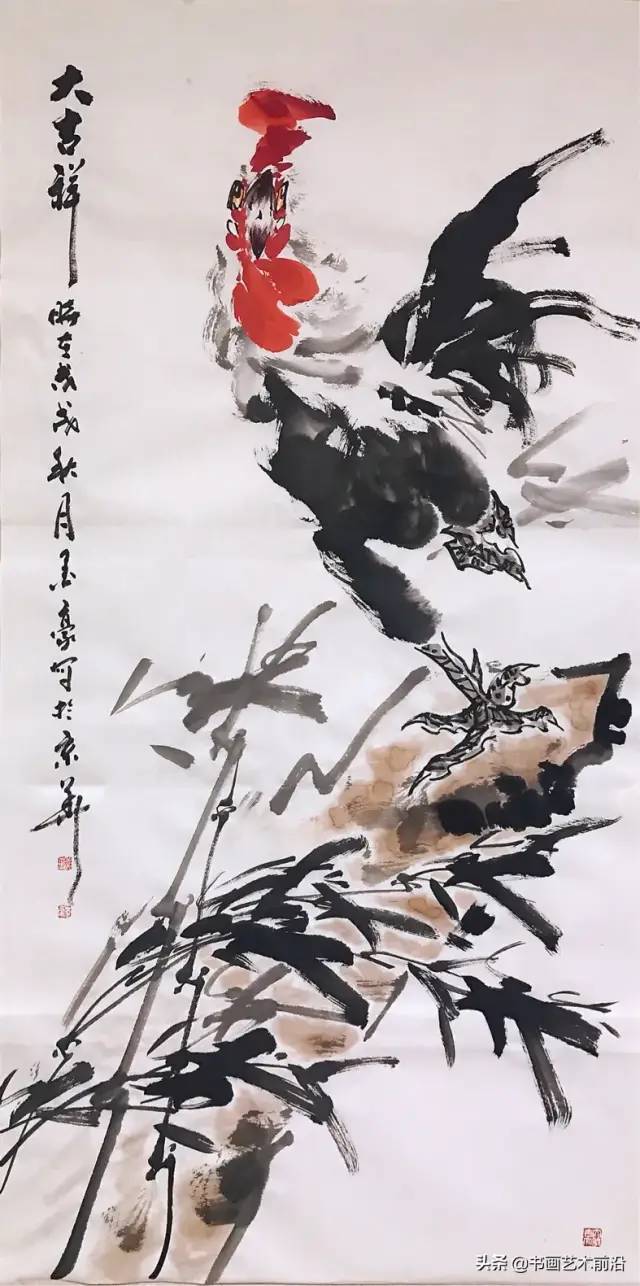 大吉祥
时在戊戌秋月墨豪写于京华
头条 @书画艺术前沿